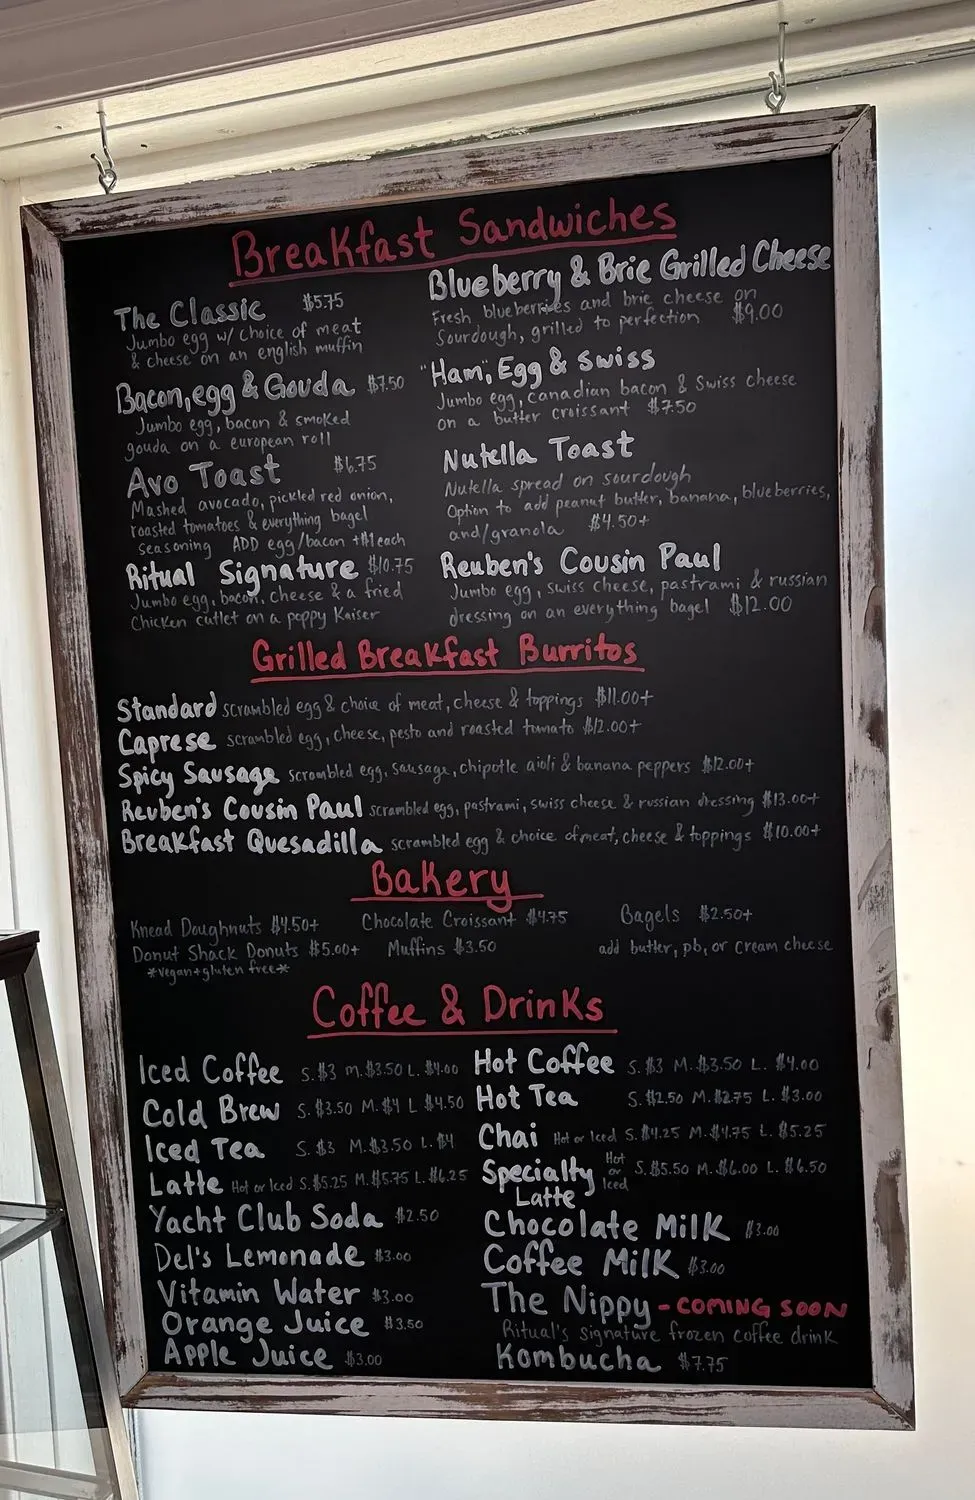 Breakfast Sandwiches
The Classic $5.75
Jumbo egg w/ choice of meat
& cheese on an english muffin
Bacon, egg & Gouda $7.50
Jumbo egg, bacon & smoked
gouda on a european roll
Avo Toast $6.75
Mashed avocado, pickled red onion,
roasted tomatoes & everything bagel
seasoning ADD egg/bacon +$1 each
Ritual Signature $10.75
Jumbo egg, bacon, cheese & a fried
Chicken cutlet on a poppy Kaiser
Blueberry & Brie Grilled Cheese
Fresh blueberries and brie cheese on
Sourdough, grilled to perfection $9.00
"Ham", Egg & Swiss
Jumbo egg, canadian bacon & Swiss cheese
on a butter croissant $7.50
Nutella Toast
Nutella spread on sourdough
Option to add peanut butter, banana, blueberries,
and/granola $4.50+
Reuben's Cousin Paul
Jumbo egg, swiss cheese, pastrami & russian
dressing on an everything bagel $12.00
Grilled Breakfast Burritos
Standard scrambled egg & choice of meat, cheese & toppings $11.00+
Caprese scrambled egg, cheese, pesto and roasted tomato $12.00+
Spicy Sausage scrambled egg, sausage, chipotle aioli & banana peppers $12.00+
Reuben's Cousin Paul scrambled egg, pastrami, swiss cheese & russian dressing $13.00+
Breakfast Quesadilla scrambled egg & choice of meat, cheese & toppings $10.00+
Bakery
Knead Doughnuts $4.50+ Chocolate Croissant $4.75 Bagels $2.50+
Donut Shack Donuts $5.00+ Muffins $3.50 add butter, pb, or cream cheese
*vegan+gluten free*
Coffee & Drinks
Iced Coffee S. $3 M. $3.50 L. $4.00
Cold Brew S. $3.50 M. $4 L $4.50
Iced Tea S. $3 M. $3.50 L. $4
Latte Hot or Iced S. $5.25 M. $5.75 L. $6.25
Yacht Club Soda $2.50
Del's Lemonade $3.00
Vitamin Water $3.00
Orange Juice $3.50
Apple Juice $3.00
Hot Coffee S. $3 M. $3.50 L. $4.00
Hot Tea S. $2.50 M. $2.75 L. $3.00
Chai Hot or Iced S. $4.25 M. $4.75 L. $5.25
Specialty Hot or Iced S. $5.50 M. $6.00 L. $6.50
Latte
Chocolate Milk $3.00
Coffee Milk $3.00
The Nippy - COMING SOON
Ritual's signature frozen coffee drink
Kombucha $7.75